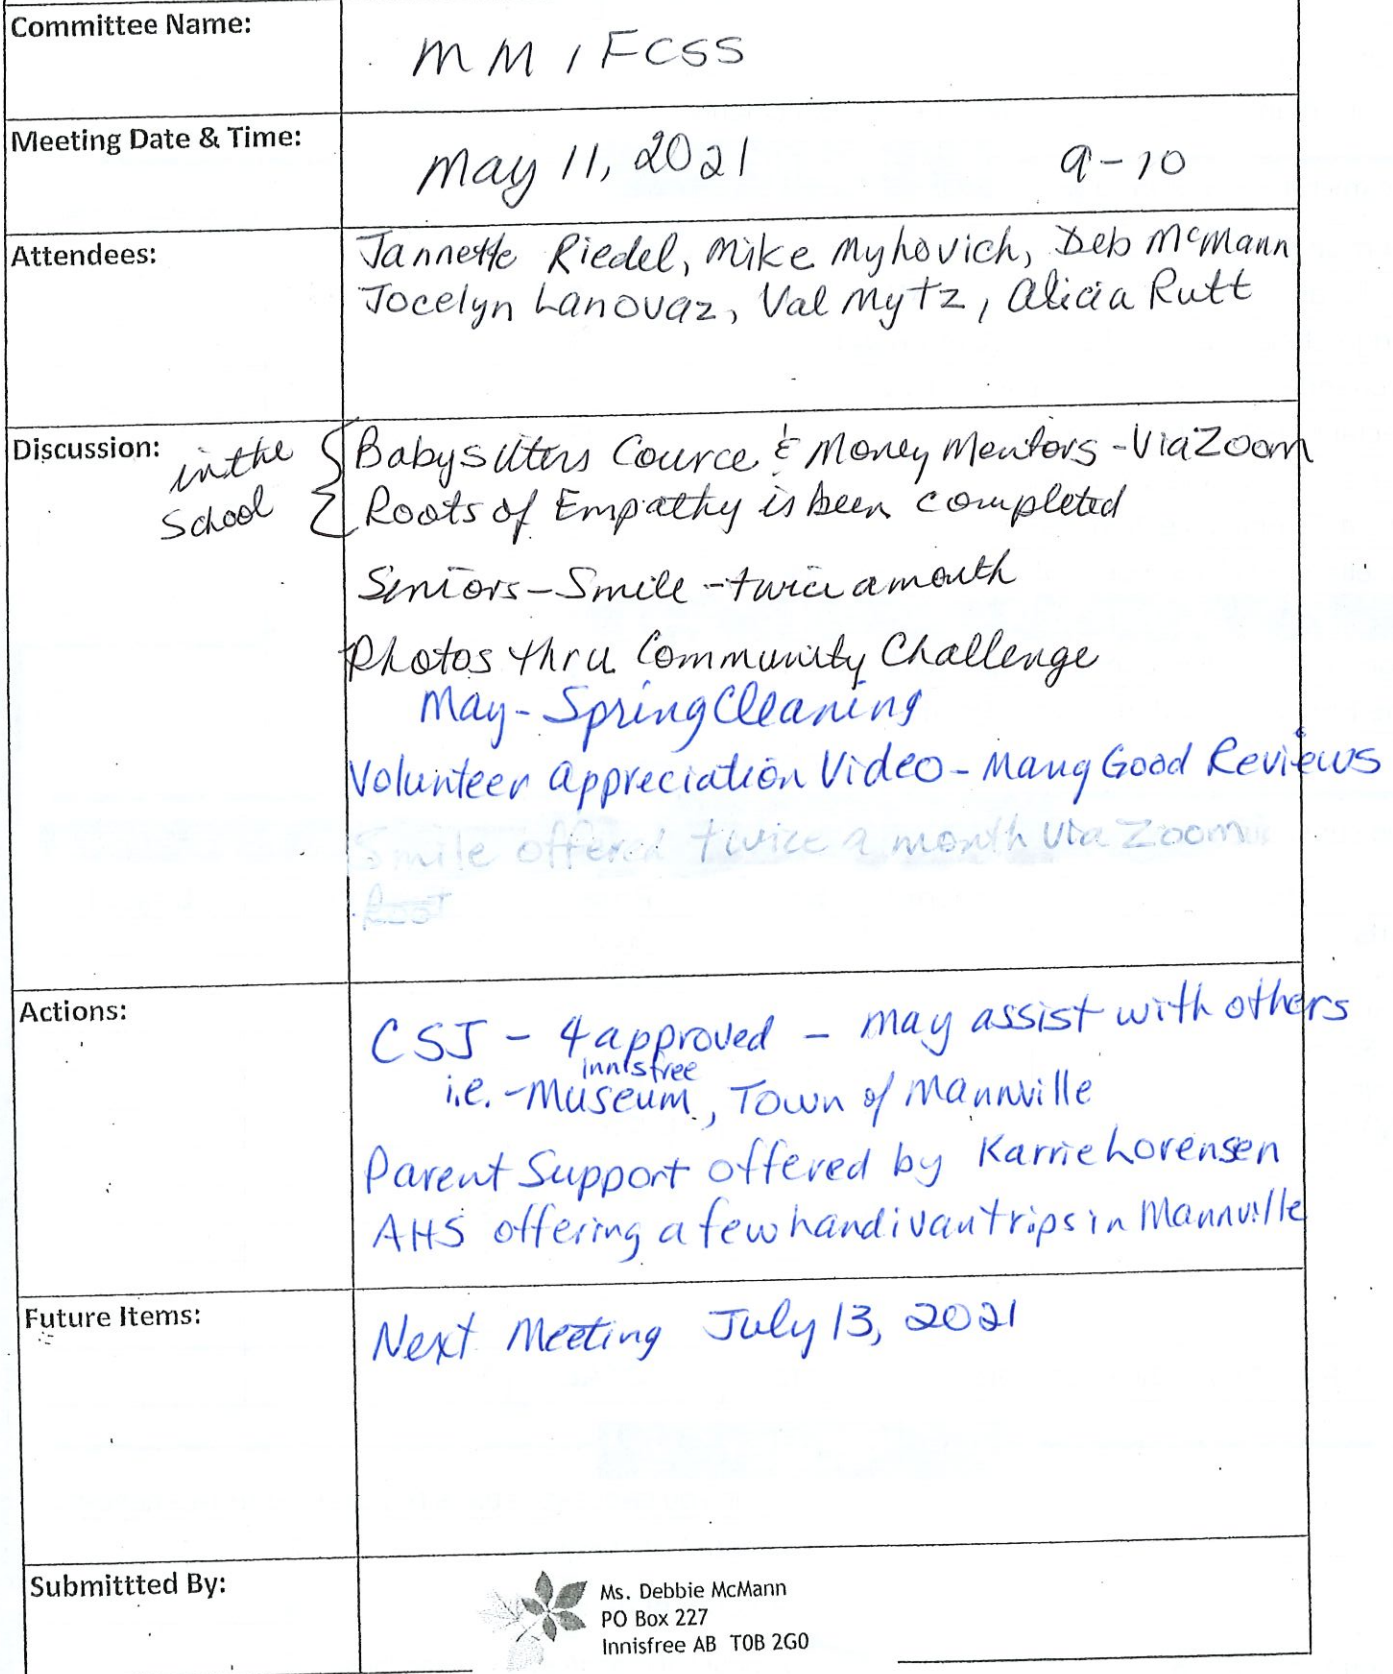 Committee Name:
M M I FCSS
Meeting Date & Time:
May 11, 2021 9-10
Attendees:
Jannette Riedel, Mike Myhovich, Deb McMann
Jocelyn Lanovaz, Val Mytz, Alicia Rutt
Discussion:
in the
School
Babysitters Cource & Money Mentors - Via Zoom
Roots of Empathy is been completed
Seniors - Smile - twice a month
Photos thru Community Challenge
May - Spring Cleaning
Volunteer Appreciation Video - Many Good Reviews
Smile offered twice a month via Zoom
Root
Actions:
CSJ - 4 approved - may assist with others
innisfree
i.e. - Museum, Town of Mannville
Parent Support offered by Karrie Lorensen
AHS offering a few handivan trips in Mannville
Future Items:
Next Meeting July 13, 2021
Submittted By:
Ms. Debbie McMann
PO Box 227
Innisfree AB T0B 2G0